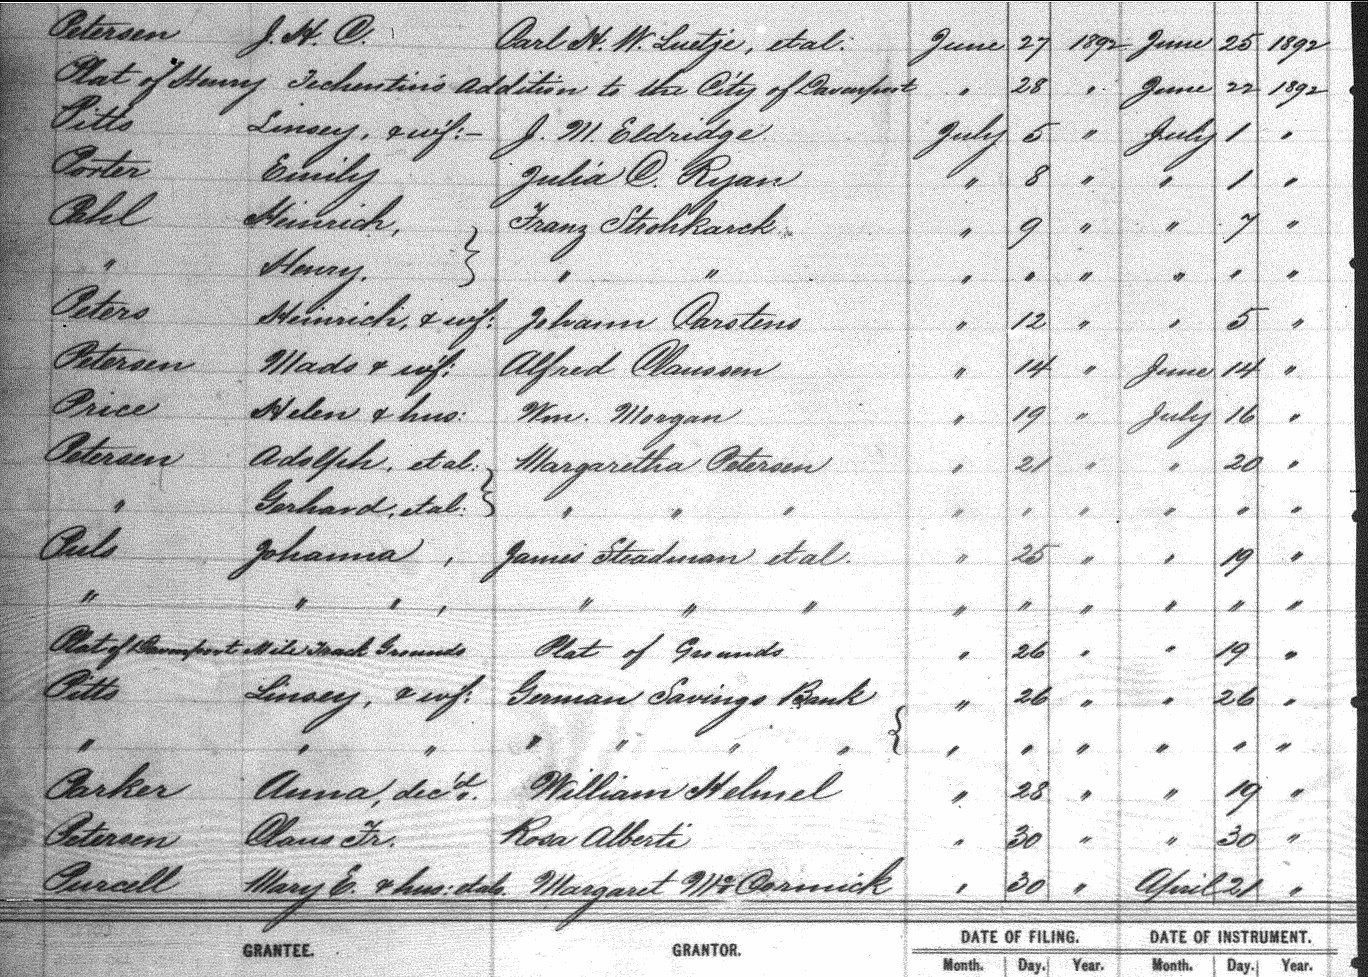 Petersen J. H. C. Carl H. W. Luetje, et al. June 27 1892 June 25 1892
Plat of Henry Tschentin's Addition to the City of Davenport " 28 " June 22 1892
Pitts Linsey, & wf:- J. M. Eldridge July 5 " July 1 "
Porter Emily Julia C. Ryan " 8 " " 1 "
Pahl Heinrich, Franz Strohkarck " 9 " " 7 "
" Henry. " " " " " " " "
Peters Heinrich, & wf: Johann Carstens " 12 " " 5 "
Petersen Mads & wf: Alfred Claussen " 14 " June 14 "
Price Helen & hus: Wm. Morgan " 19 " July 16 "
Petersen Adolph, et al: Margaretha Petersen " 21 " " 20 "
" Gerhard, et al: " " " " " " " " "
Puls Johanna , James Steadman et al. " 25 " " 19 "
" " " , " " " " " " " " "
Plat of Davenport Mile Track Grounds Plat of Grounds " 26 " " 19 "
Pitts Linsey, & wf: German Savings Bank " 26 " " 26 "
" " " " " " " " " " " " "
Parker Anna, dec'd. William Helmel " 28 " " 19 "
Petersen Claus Fr. Rosa Alberti " 30 " " 30 "
Purcell Mary E. & hus: Margaret McCormick " 30 " April 21 "
GRANTEE. GRANTOR. DATE OF FILING. DATE OF INSTRUMENT.
Month. Day. Year. Month. Day. Year.